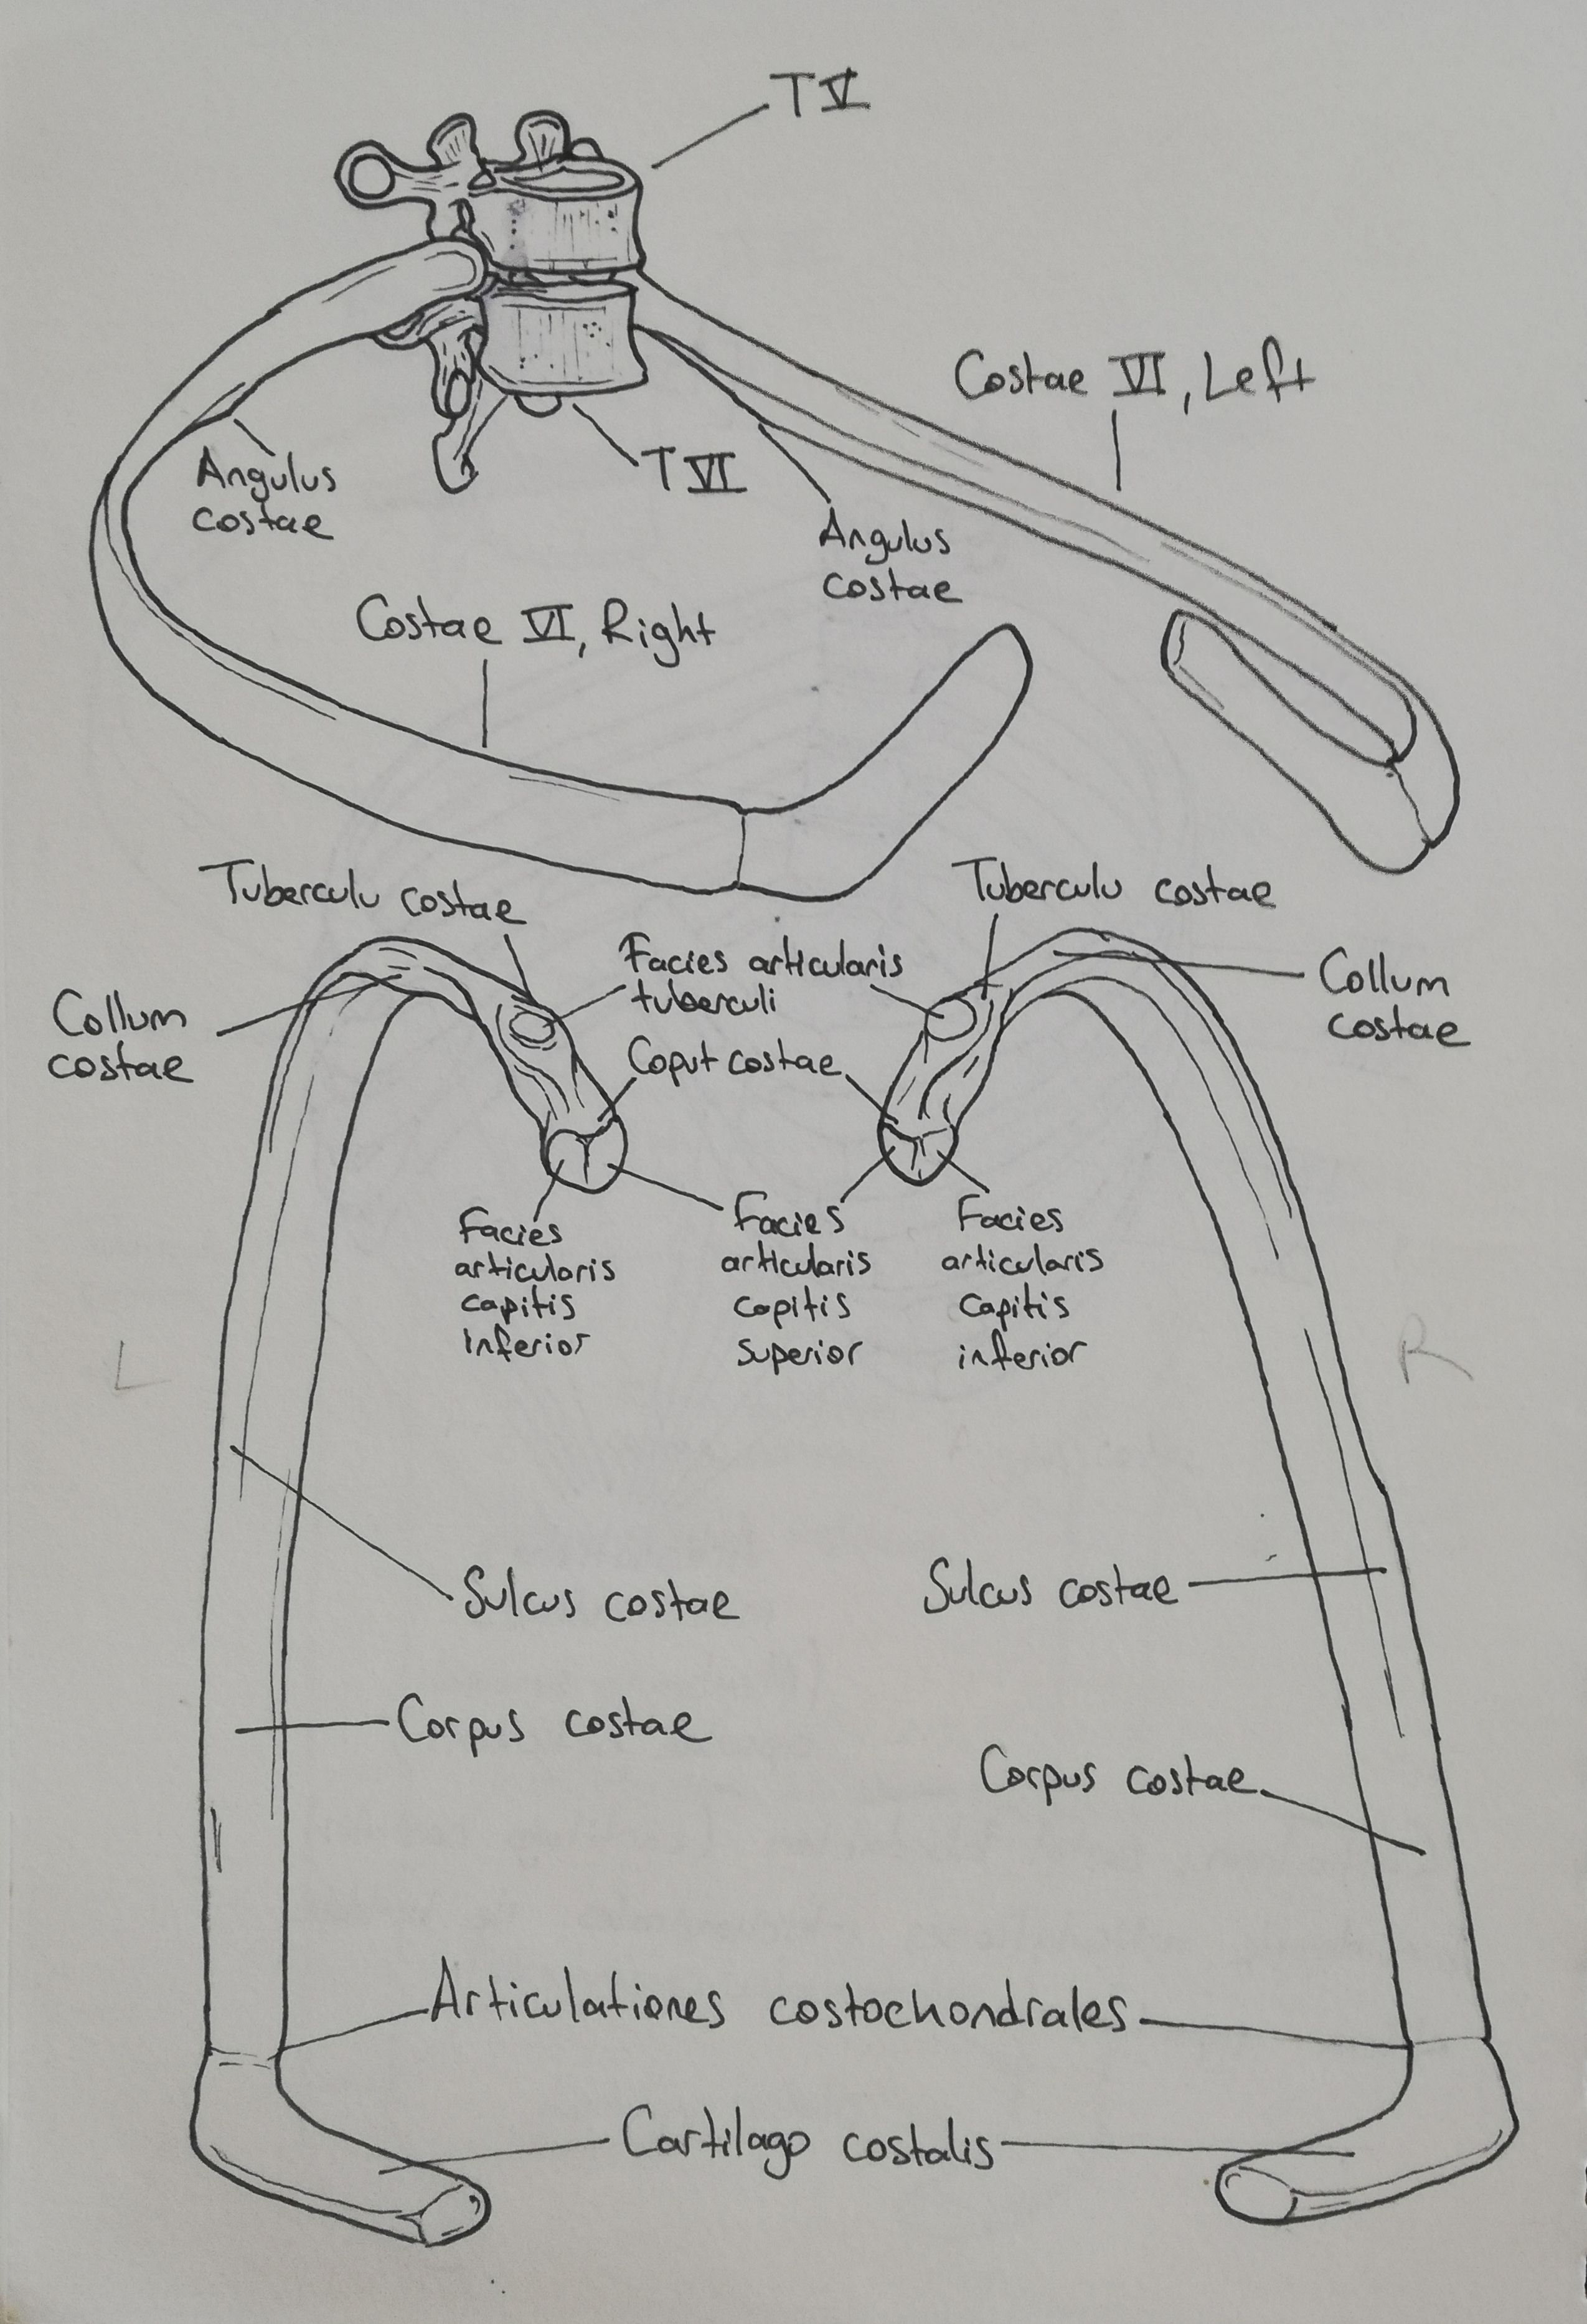 T V
Costae VI, Left
T VI
Angulus
costae
Angulus
costae
Costae VI, Right
Tuberculu costae
Tuberculu costae
Facies articularis
tuberculi
Collum
costae
Collum
costae
Coput costae
Facies
articularis
capitis
inferior
Facies
articularis
copitis
superior
Facies
articularis
capitis
inferior
L
R
Sulcus costae
Sulcus costae
Corpus costae
Corpus costae
Articulationes costochondrales
Cartilago costalis